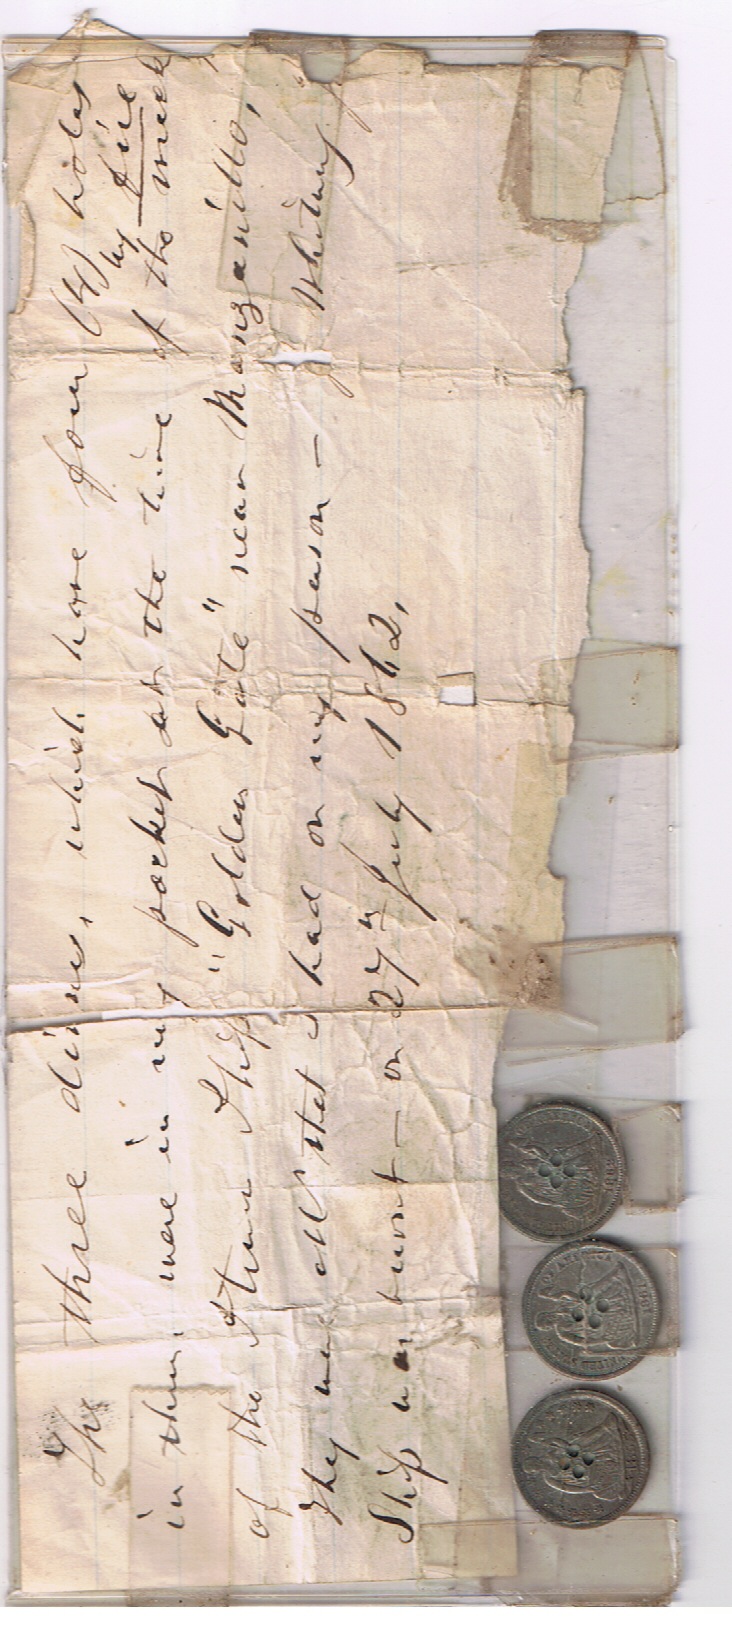 The three dimes, which have four (4) holes
in them, were in my pocket at the time of the wreck
by fire
of the Steam Ship "Golden Gate" near Manzanillo,
They was all that I had on my person – when my
Ship was burnt – on 27th July 1862.
UNITED STATES OF AMERICA